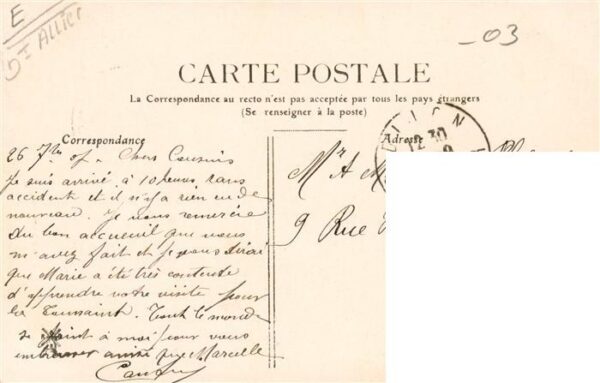 E
Dt Allier
-03
CARTE POSTALE
La Correspondance au recto n'est pas acceptée par tous les pays étrangers
(Se renseigner à la poste)
Correspondance
Adresse
26 7bre 07 Chers Cousins
Je suis arrivé à 10 heures sans
accident et il n'y a rien eu de
nouveau. Je vous remercie
du bon accueil que vous
m'avez fait et je vous dirai
que Marie a été très contente
d'apprendre votre visite pour
la Toussaint. Tout le monde
se joint à moi pour vous
embrasser ainsi que Marcelle
Mr A M
9 Rue